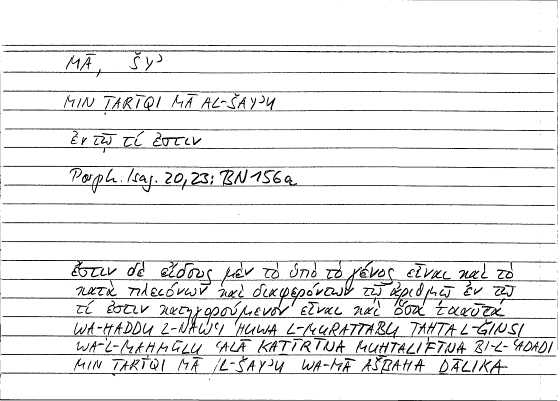 MĀ, ŠYʾ
MIN ṬARĪQI MĀ AL-ŠAYʾU
ἐν τῷ τί ἐστιν
Porph. Isag. 20,23; BN 156a
ἔστιν δὲ εἴδους μὲν τὸ ὑπὸ τὸ γένος εἶναι καὶ τὸ
κατὰ πλειόνων καὶ διαφερόντων τῷ ἀριθμῷ ἐν τῷ
τί ἐστιν κατηγορούμενον εἶναι καὶ ὅσα τοιαῦτα
WA-ḤADDU L-NAWʿI HUWA L-MURATTABU TAḤTA L-ǦINSI
WA-L-MAḤMŪLU ʿALĀ KAṮĪRĪNA MUḪTALIFĪNA BI-L-ʿADADI
MIN ṬARĪQI MĀ L-ŠAYʾU WA-MĀ AŠBAHA ḎĀLIKA